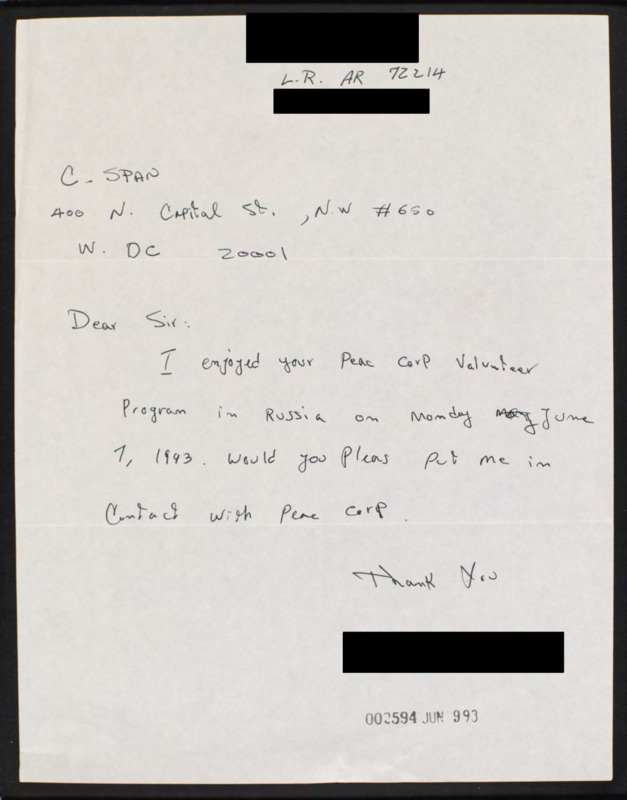 L.R. AR 72214
C- SPAN
400 N. Capital St. , N.W #650
W. DC 20001
Dear Sir:
I enjoyed your Peac Corp Valunteer
Program in Russia on Monday June
7, 1993. Would you Pleas Put me in
Contact with Peac Corp.
Thank You
002594 JUN 993